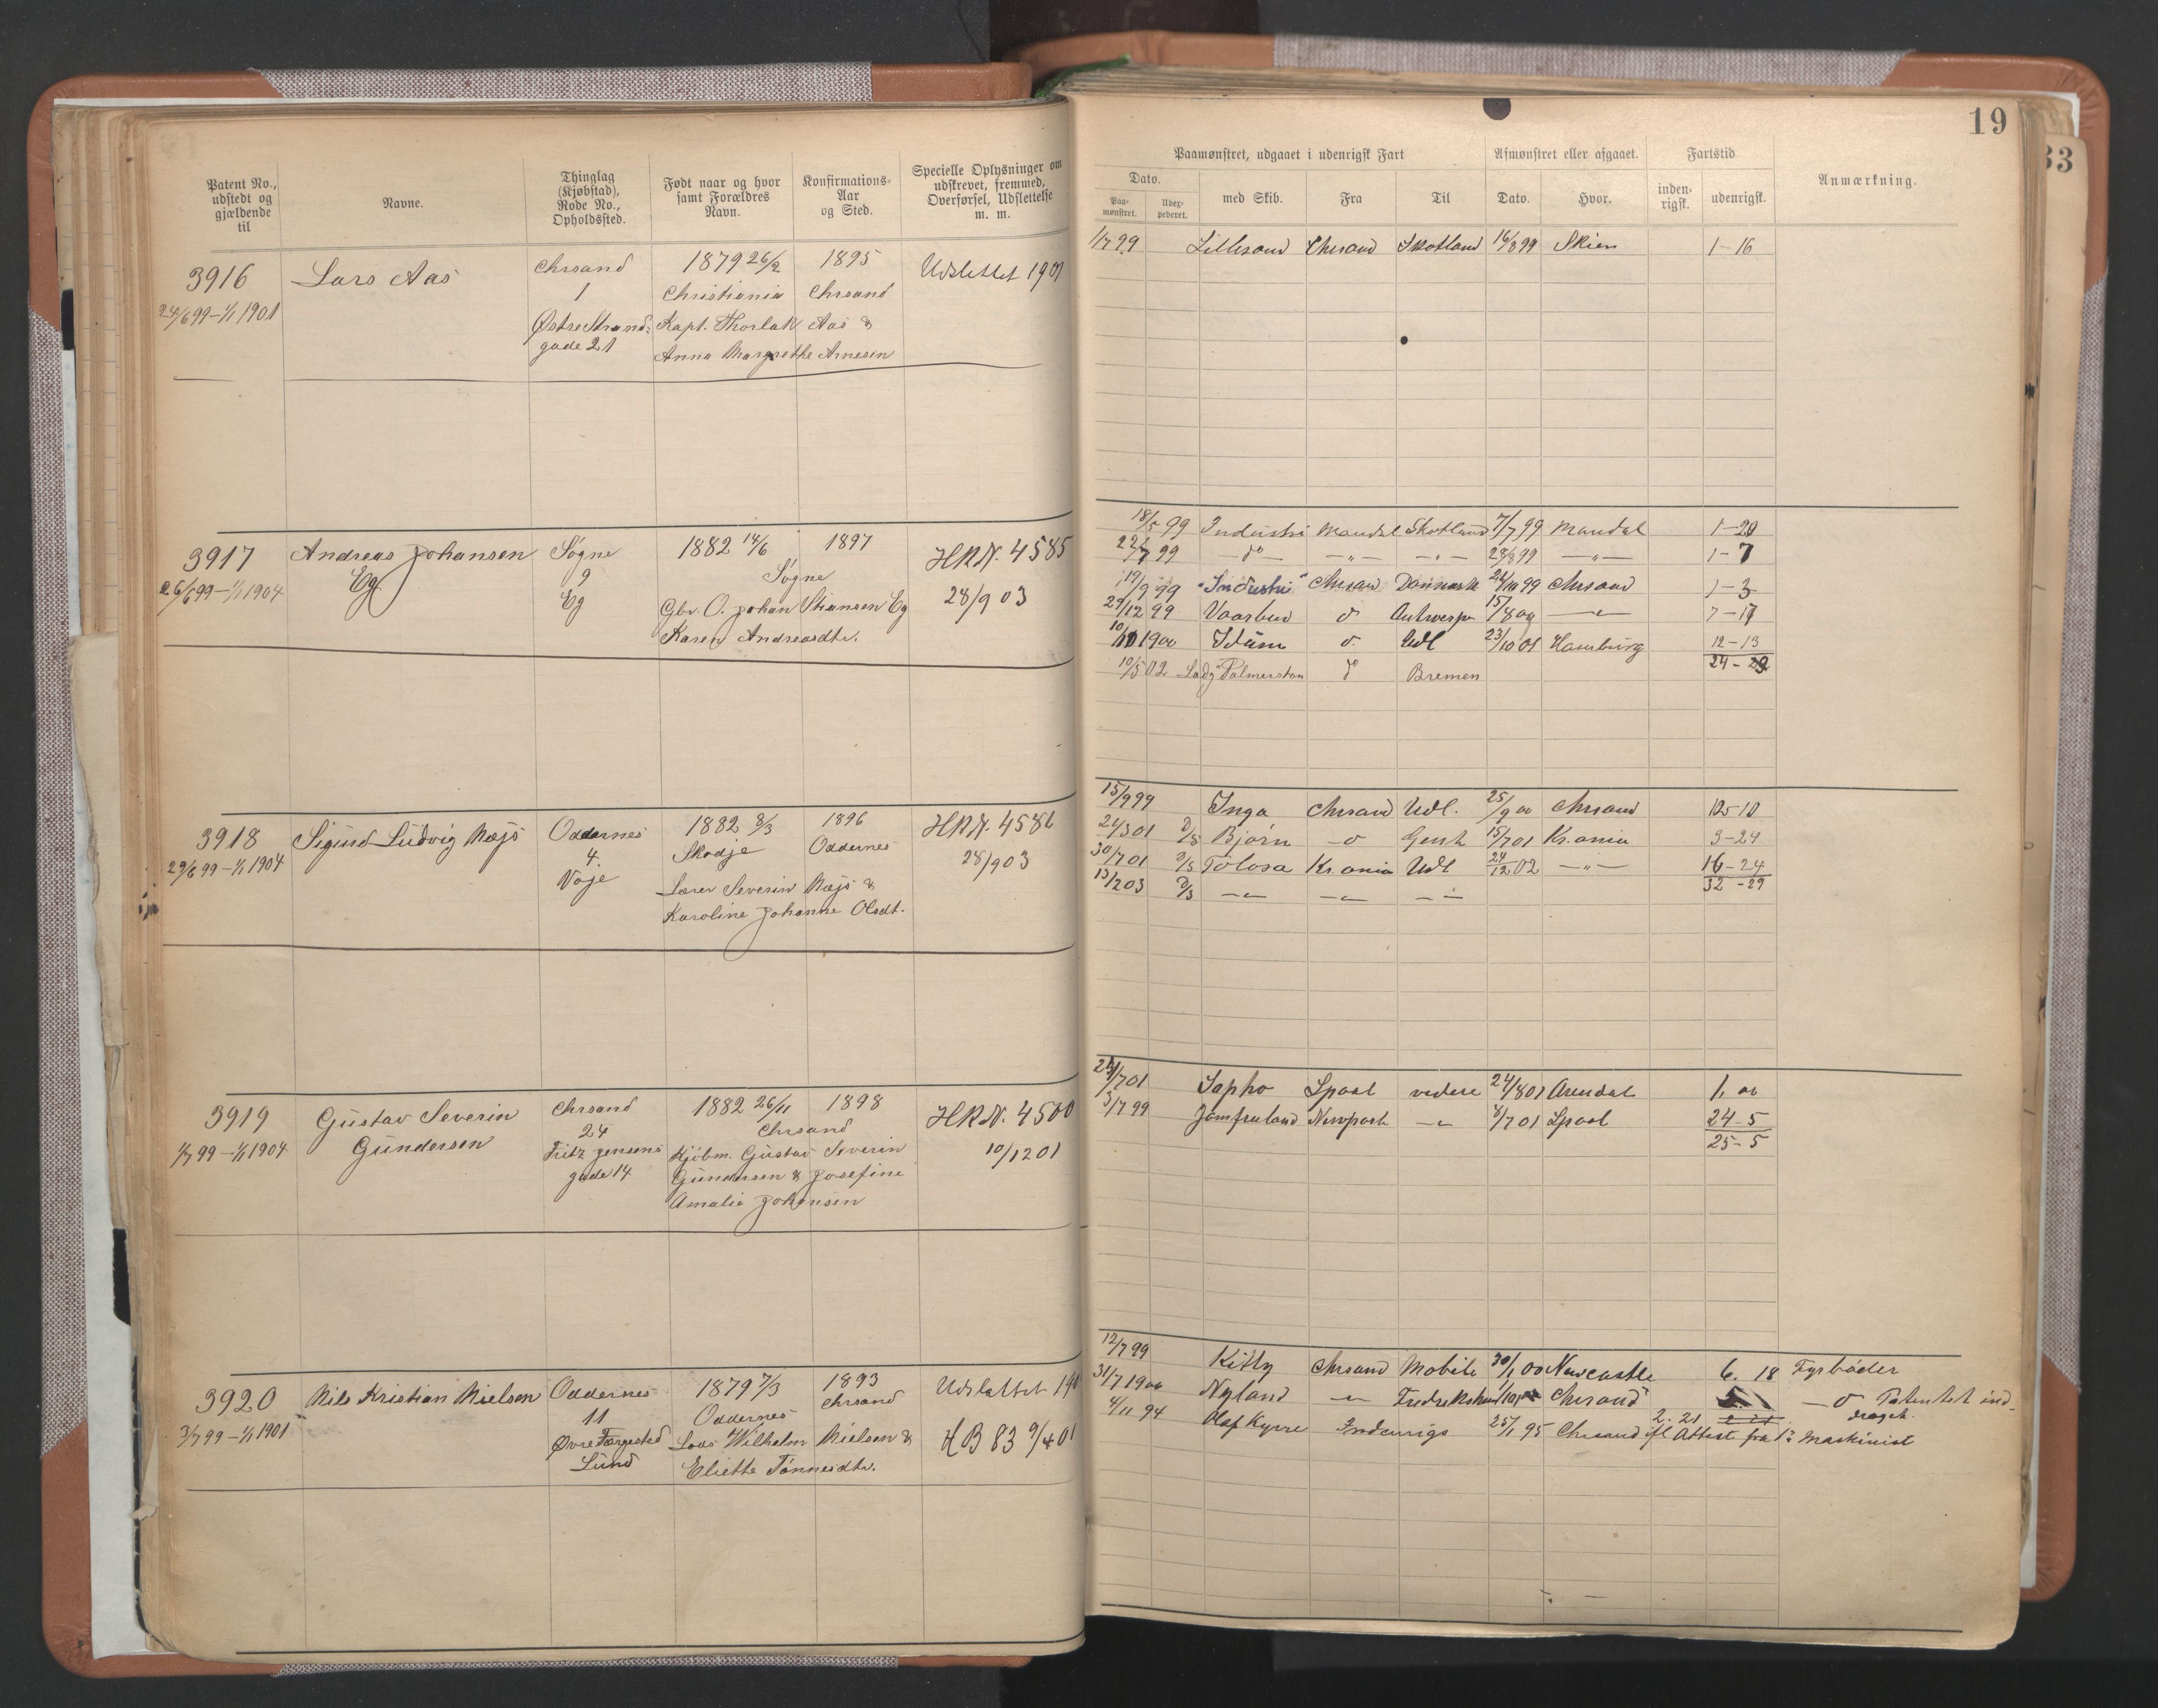 19
33
Patent No., udstedt og gjældende til
Navne.
Thinglag (Kjøbstad), Rode No., Opholdssted.
Født naar og hvor samt Forældres Navn.
Konfirmations-Aar og Sted.
Specielle Oplysninger om udskrevet, fremmed, Overførsel, Udslettelse m. m.
Paamønstret, udgaaet i udenrigsk Fart
Afmønstret eller afgaaet.
Fartstid
Anmærkning.
Dato.
Paa-mønstret.
Udex-pederet.
med Skib.
Fra
Til
Dato.
Hvor.
inden-rigsk.
udenrigsk.
3916 Lars Aas Chrsand 1879 26/2 1895 Udslettet 1901
24/6 99 – 1/1 1901 1 Christiania Chrsand
Østre Strand- Kapt. Thorlak Aas &
gade 21 Anna Margrethe Arnesen
1/7 99 Lillesand Chrsand Skotland 16/8 99 Skien 1–16
3917 Andreas Johansen Søgne 1882 14/6 1897 HRN. 4585
26/6 99 – 1/1 1904 Eg 9 Søgne 28/9 03
Eg Gbr. O. Johan Stiansen Eg
Karen Andreasdtr.
18/5 99 Industri Mandal Skotland 7/7 99 Mandal 1–20
22/7 99 – do – – " – – " – 28/8 99 – " – 1–7
19/9 99 "Industri" Chrsand Danmark 22/10 99 Chrsand 1–3
29/12 99 Vaarbud do Antwerp 15/8 00 – " – 7–17
10/10 1900 Idun do. Udl 23/10 01 Hamburg 12–13
24–29
10/5 02 Lady Palmerston do Bremen
3918 Sigurd Ludvig Næjs Oddernes 1882 8/3 1896 HRN. 4586
29/6 99 – 1/1 1904 4. Skodje Oddernes 28/9 03
Voje Lærer Severin Næjs &
Karoline Johanne Olsdt.
15/9 99 Inga Chrsand Udl. 25/9 00 Chrsand 12–10
21/3 01 D/S Bjørn – o Gent 15/7 01 Kr.ania 3–24
30/7 01 D/S Tolosa Kr ania Udl 24/12 02 – " – 16–24
13/2 03 D/S – " – – " – – " – 32–29
3919 Gustav Severin Chrsand 1882 26/11 1898 HRN. 4500
1/7 99 – 1/1 1904 Gundersen 24 Chrsand 10/12 01
Fritz Jensens Kjøbm. Gustav Severin
gade 14 Gundersen & Josefine
Amalie Johansen
24/7 01 Sapho Lpool videre 24/8 01 Arendal 1, 00
3/7 99 Jomfruland Newport – " 8/7 01 Lpool 24–5
25–5
3920 Nils Kristian Nielsen Oddernes 1879 7/3 1893 Udslettet 190
3/7 99 – 1/1 1901 11 Oddernes Chrsand
Øvre Færgested Lods Wilhelm Nielsen & HB 83 9/4 01
Lund Eliette Tønnesdtr.
12/7 99 Kitty Chrsand Mobile 30/1 00 Newcastle 6. 18 Fyrbøder
31/7 1900 Nyland – " Chrsand – o Patentet ind-
draget.
4/11 94 Olaf Kyrre Indenrigs 25/1 95 Chrsand 2. 21 ifl. Attest fra 1ste Maskinist